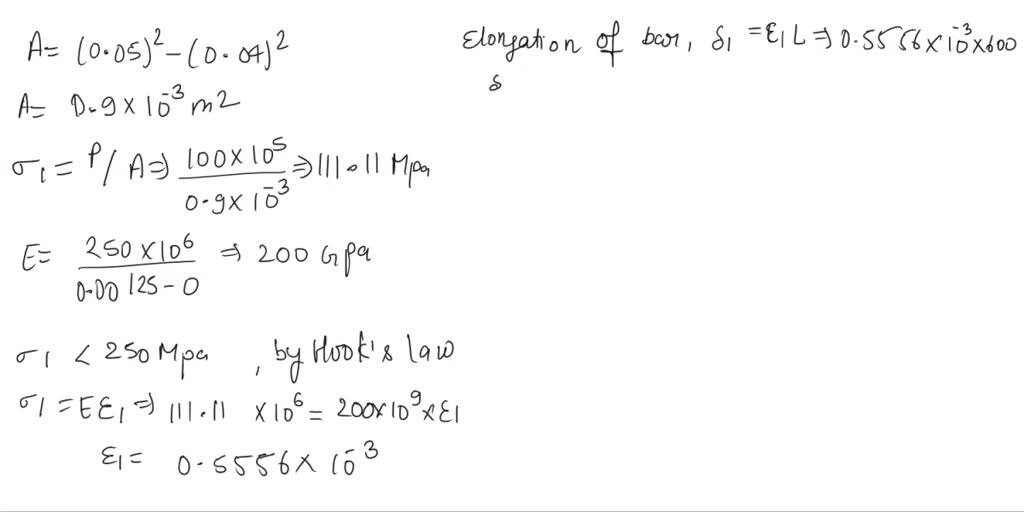 A= (0.05)² - (0.04)²
A= 0.9 × 10⁻³ m2
σ1 = P/A ⇒ 100 × 10⁵ / 0.9 × 10⁻³ ⇒ 111.11 Mpa
E= 250 × 10⁶ / 0.00125 - 0 ⇒ 200 Gpa
σ1 < 250 Mpa , by Hook's law
σ1 = E ε1 ⇒ 111.11 × 10⁶ = 200×10⁹ × ε1
ε1 = 0.5556 × 10⁻³
Elongation of bar, δ1 = ε1 L ⇒ 0.5556 × 10⁻³ × 600
δ